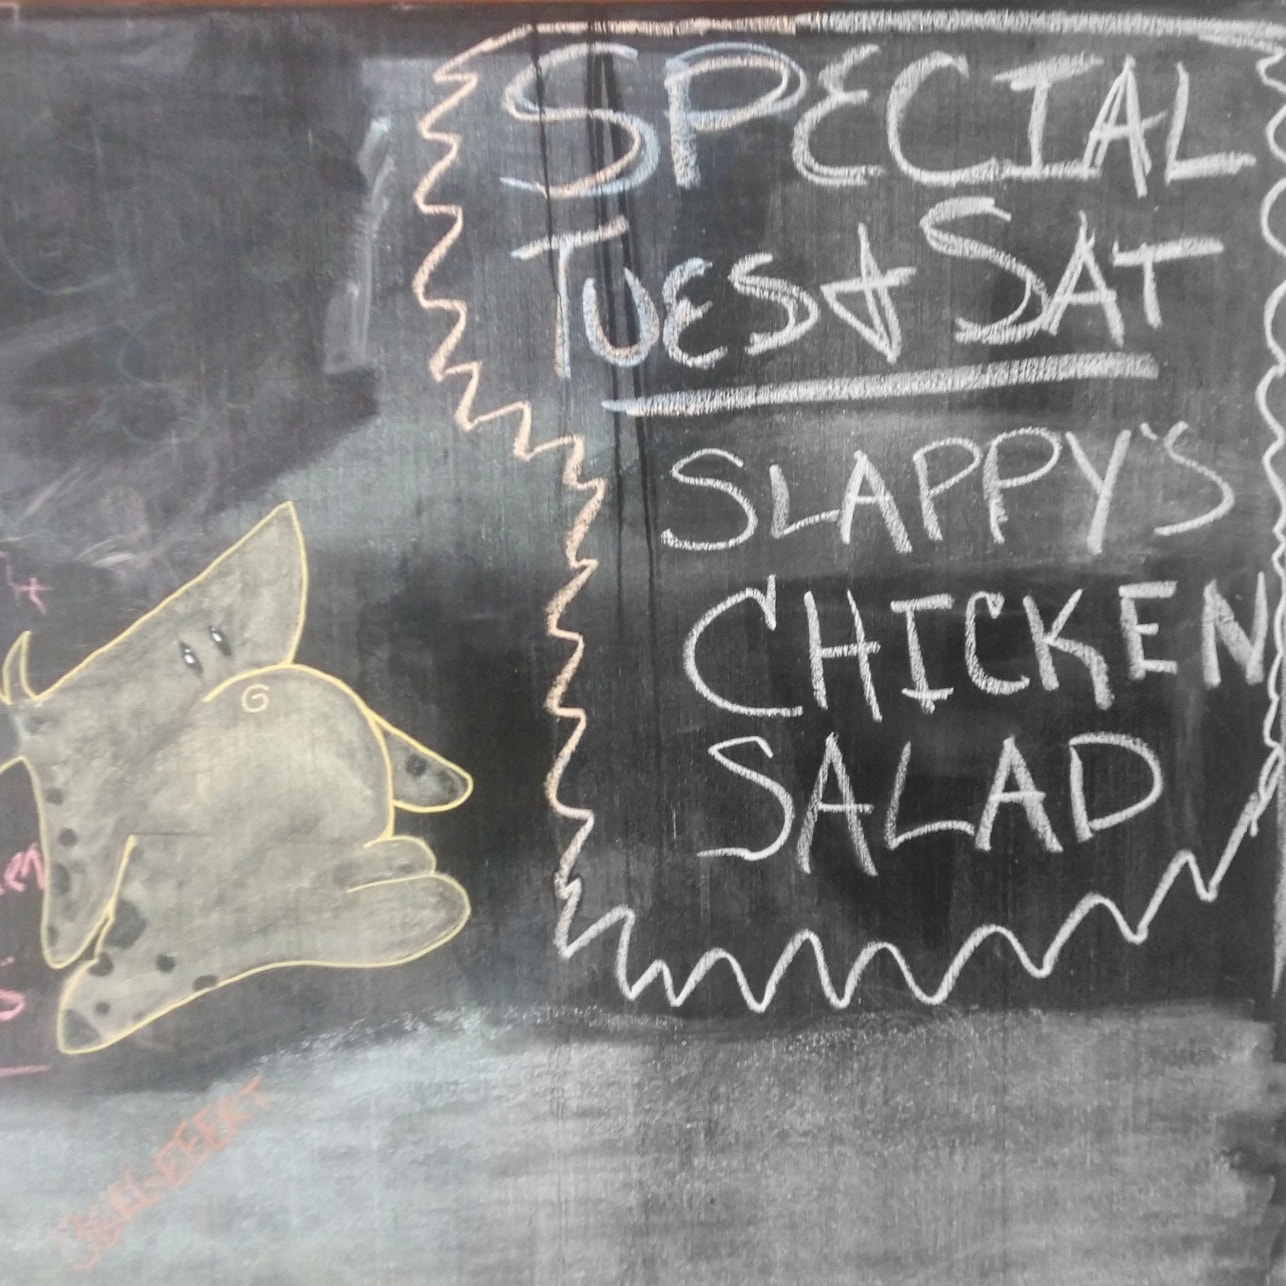 SPECIAL
TUES & SAT
SLAPPY'S
CHICKEN
SALAD